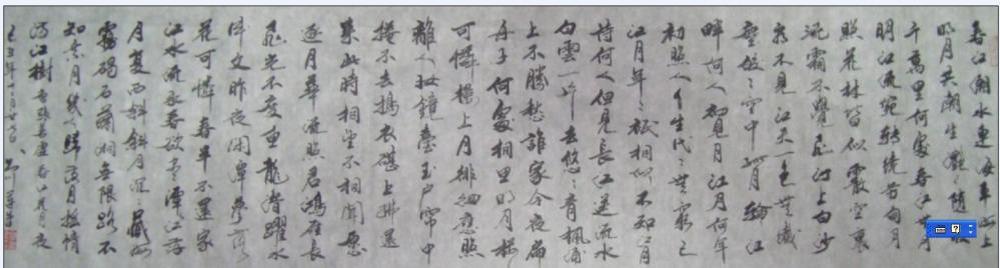 春江潮水連海平海上
明月共潮生灩灩隨波
千萬里何處春江無月
明江流宛轉繞芳甸月
照花林皆似霰空裏
流霜不覺飛汀上白沙
看不見江天一色無纖
塵皎皎空中孤月輪江
畔何人初見月江月何年
初照人人生代代無窮已
江月年年祗相似不知江月
待何人但見長江送流水
白雲一片去悠悠青楓浦
上不勝愁誰家今夜扁
舟子何處相思明月樓
可憐樓上月徘徊應照
離人妝鏡臺玉戶簾中
捲不去搗衣砧上拂還
來此時相望不相聞愿
逐月華流照君鴻雁長
飛光不度魚龍潛躍水
成文昨夜閑潭夢落
花可憐春半不還家
江水流春去欲盡江潭落
月復西斜斜月沉沉藏海
霧碣石瀟湘無限路不
知乘月幾人歸落月搖情
滿江樹 張若虛春江花月夜